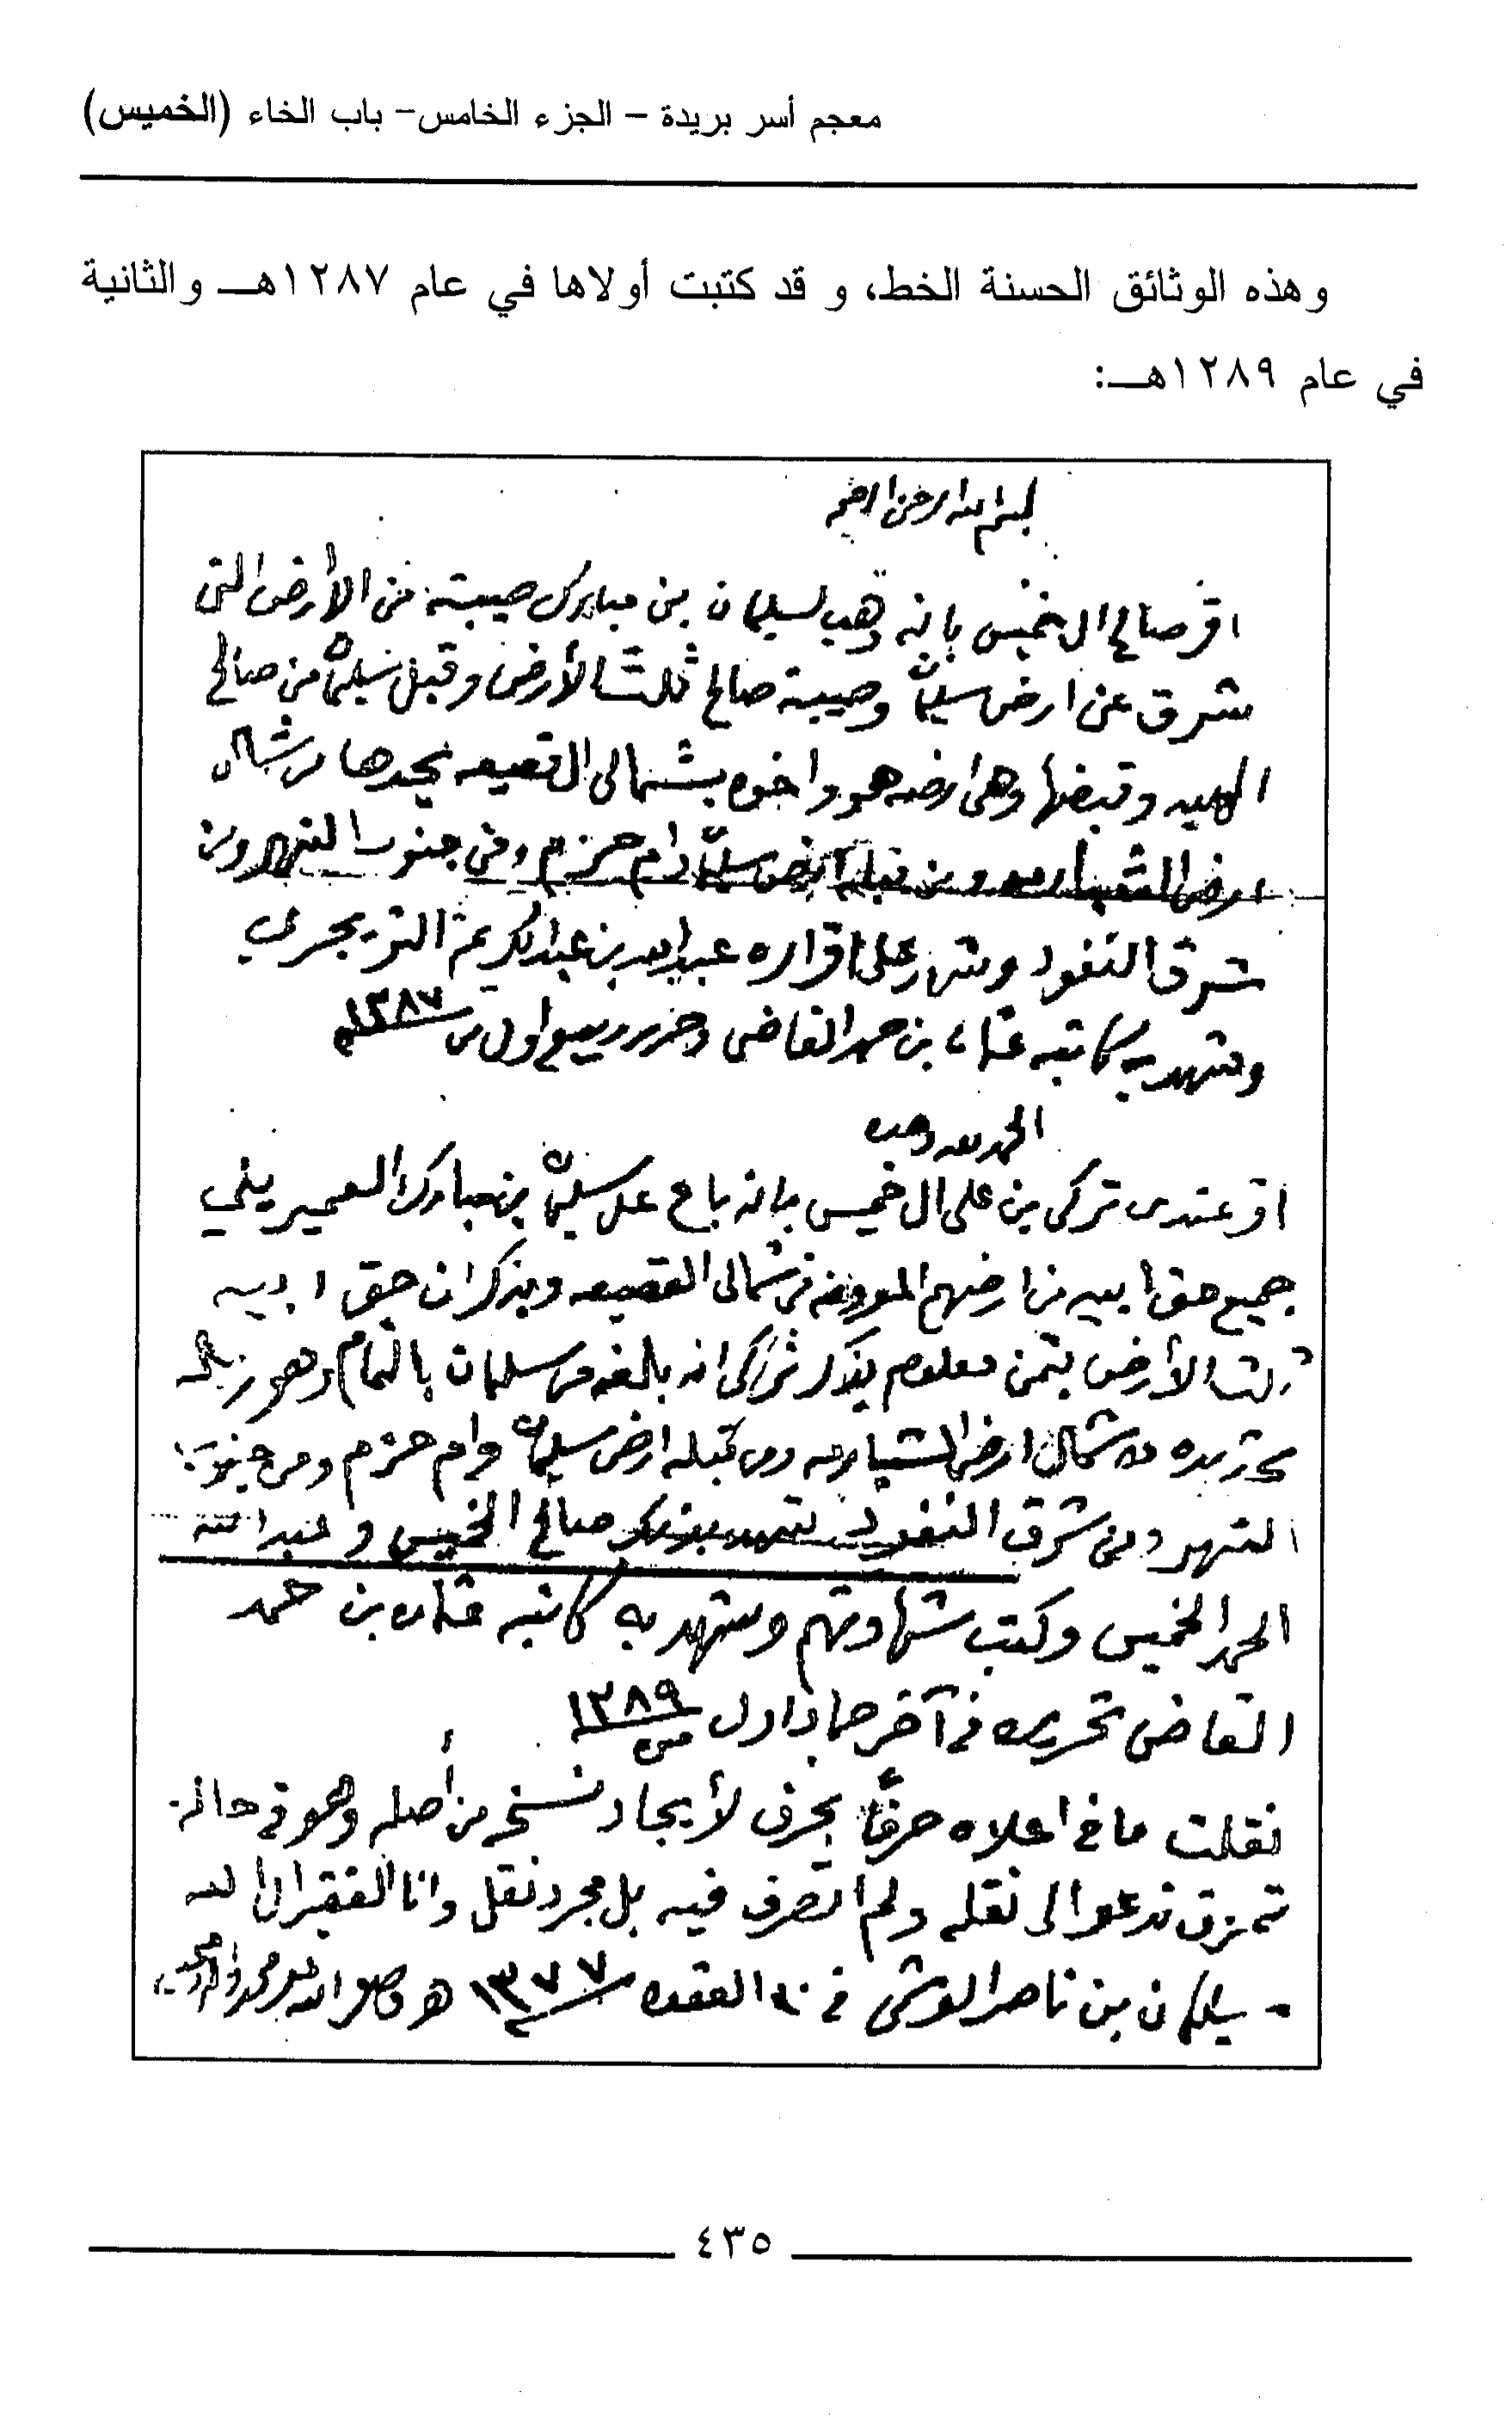 معجم أسر بريدة – الجزء الخامس – باب الخاء (الخميس)
وهذه الوثائق الحسنة الخط، وقد كتبت أولاها في عام ١٢٨٧هـ والثانية
في عام ١٢٨٩هـ:
بسم الله الرحمن الرحيم
اقر صالح ال خميس بانه وهب لسليمان بن مبارك صيبته من الأرض التي
شرق عن ارض سليمان وصيبة صالح ثلث الأرض وقبل سليمان من صالح
الهبيه وقبضها وهي ارضه هو واخوه بشمالي القصيعه يحدها من شمال
ارض الشيارمه ومن قبله ارض سليمان وام حزم ومن جنوب النهر ومن
شرق النفود وشهد على اقراره عبدالله بن عبدالكريم التويجري
وشهد به كاتبه عثمان بن حمد القاضي وحرر ربيع اول سنة ١٢٨٧
الحمد لله وحده
اقر عندي تركي بن علي ال خميس بانه باع على سليمان بن مبارك العميريني
جميع حق ابيه من ارضهم المعروفه في شمالي القصيعه ويذكر ان حق ابيه
ثلث الأرض بثمن معلوم يذكر تركي انه بلغه من سليمان بالتمام وهو
تحديده من شمال ارض الشيارمه ومن قبله ارض سليمان وام حزم ومن جنوب
النهر ومن شرق النفود شهد بذلك صالح الخميس وعبدالله
الحمد الخميس وكتب شهادتهم وشهد به كاتبه عثمان بن حمد
القاضي تحريره في آخر جماد اول سنة ١٢٨٩
نقلت ما في اعلاه حرفًا بحرف لأيجاد نسخه من أصله وهو في حالة
تمزق تدعو الى نقله ولم اتصرف فيه بل مجرد نقل وانا الفقير الى الله
سليمان بن ناصر الوشمي في ٣٠ القعده سنة ١٣٧٧ هـ وصلى الله على محمد وآله وصحبه
٤٣٥